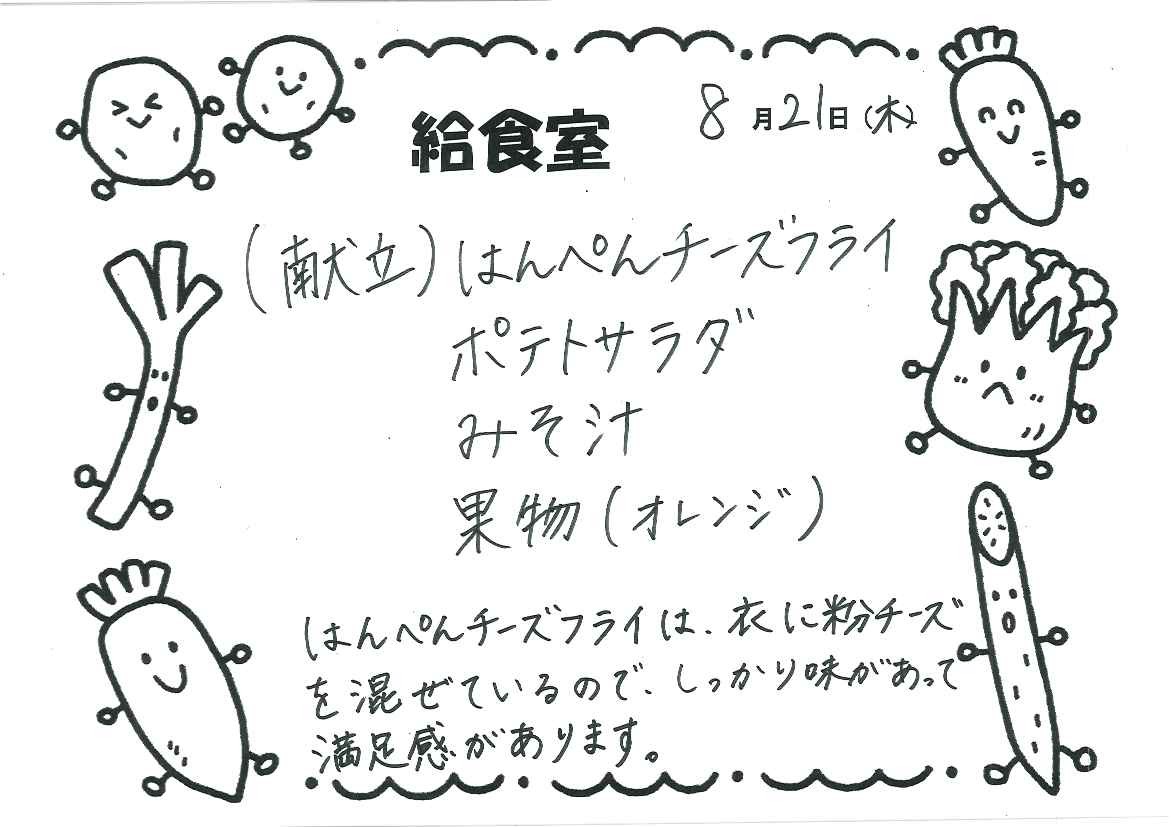 給食室
8月21日(木)
(献立)はんぺんチーズフライ
ポテトサラダ
みそ汁
果物(オレンジ)
はんぺんチーズフライは、衣に粉チーズ
を混ぜているので、しっかり味があって
満足感があります。